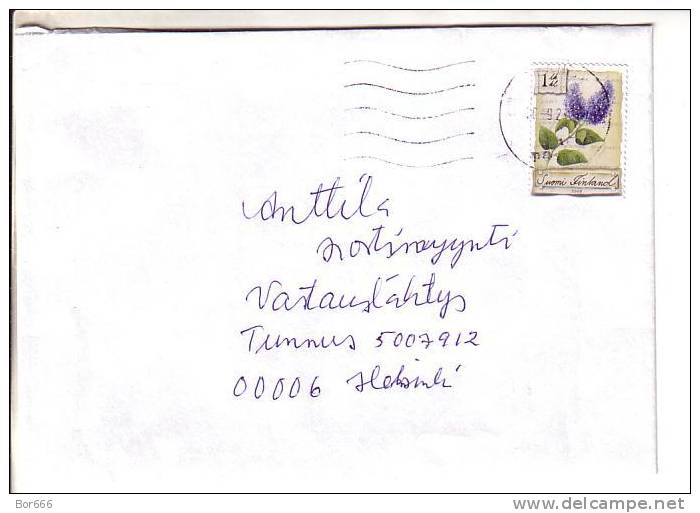 1 lk
Suomi Finland
Anttila
Postimyynti
Vastauslähtys
Tunnus 5007912
00006 Helsinki
Bor666
delcampe.net